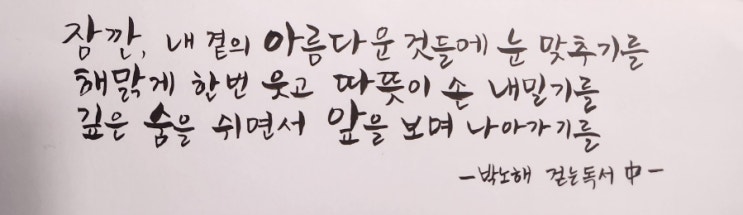 잠깐, 내 곁의 아름다운 것들에 눈 맞추기를
해맑게 한번 웃고 따뜻이 손 내밀기를
깊은 숨을 쉬면서 앞을 보며 나아가기를
-박노해 걷는독서 中-